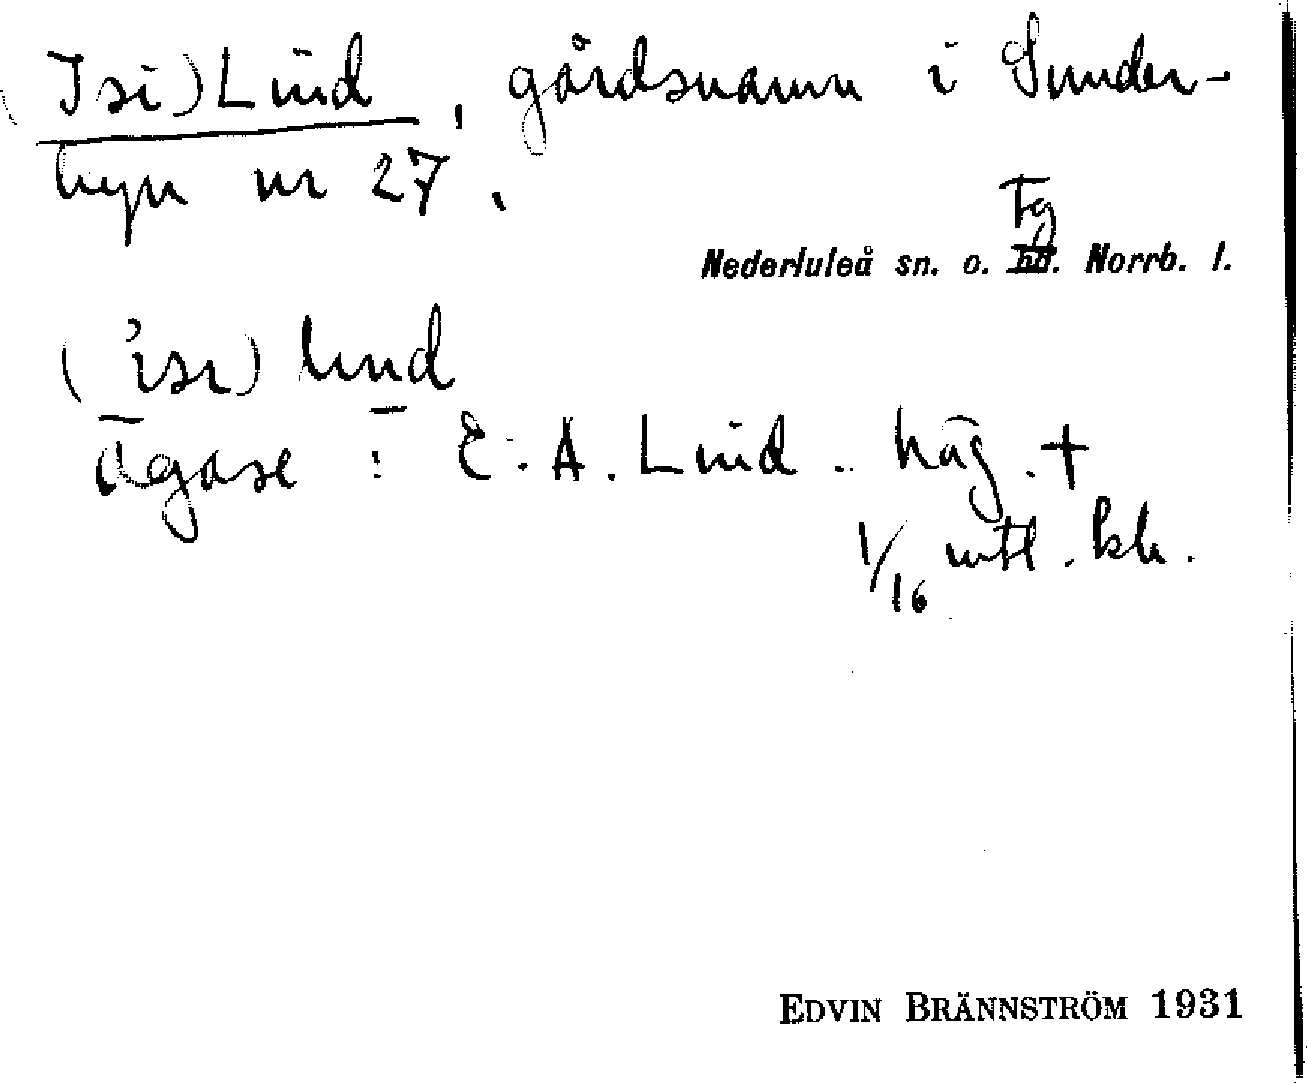 (Isi)Lind, gårdsnamn i Sunder-
byn nr 27.
Tg
Nederluleå sn. o. hd. Norrb. l.
('isi) lind
Ägare: E. A. Lind .. häg. +
1/16 mtl. kr.
EDVIN BRÄNNSTRÖM 1931